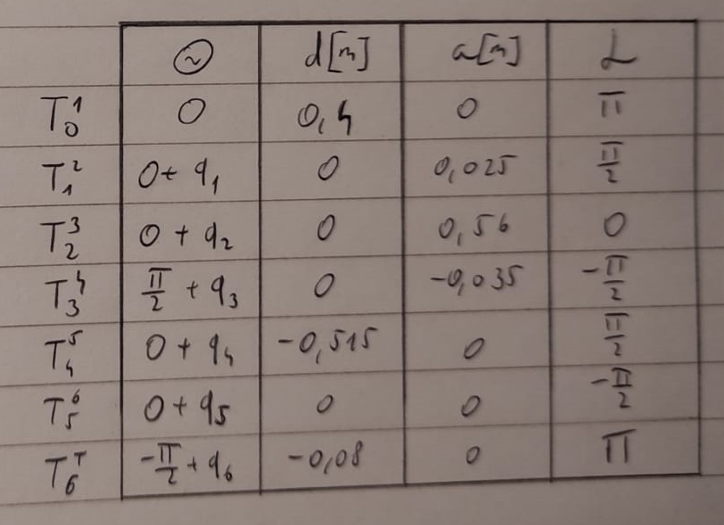 Θ d[m] a[m] α
T₀¹ 0 0,4 0 π
T₁² 0+ q₁ 0 0,025 π/2
T₂³ 0 + q₂ 0 0,56 0
T₃⁴ π/2 + q₃ 0 -0,035 -π/2
T₄⁵ 0 + q₄ -0,515 0 π/2
T₅⁶ 0+q₅ 0 0 -π/2
T₆ᵀ -π/2+q₆ -0,08 0 π